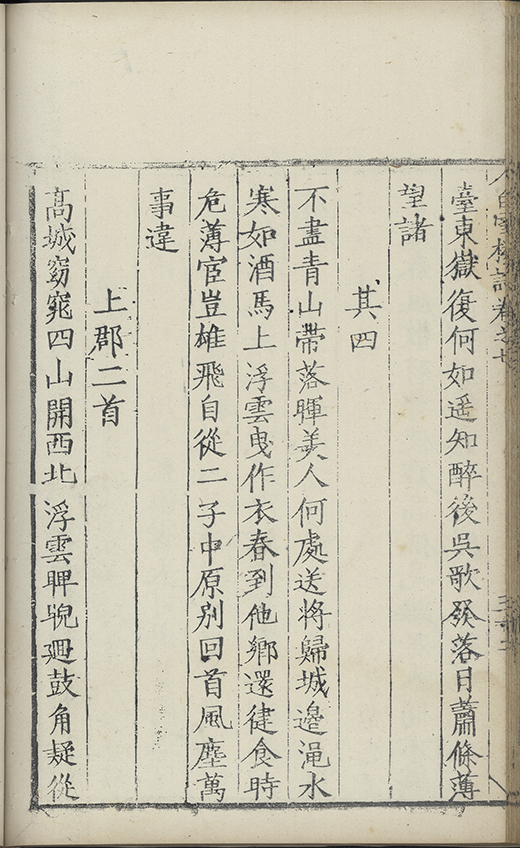 白雪樓詩卷之七
臺東嶽復何如遥知醉後吳歌發落日蕭條薄
望諸
其四
不盡青山帶落暉美人何處送將歸城邉澠水
寒如酒馬上浮雲曳作衣春到他鄉還徤食時
危薄宦豈雄飛自從二子中原别回首風塵萬
事違
上郡二首
髙城窈窕四山開西北浮雲睥睨廻鼓角疑從